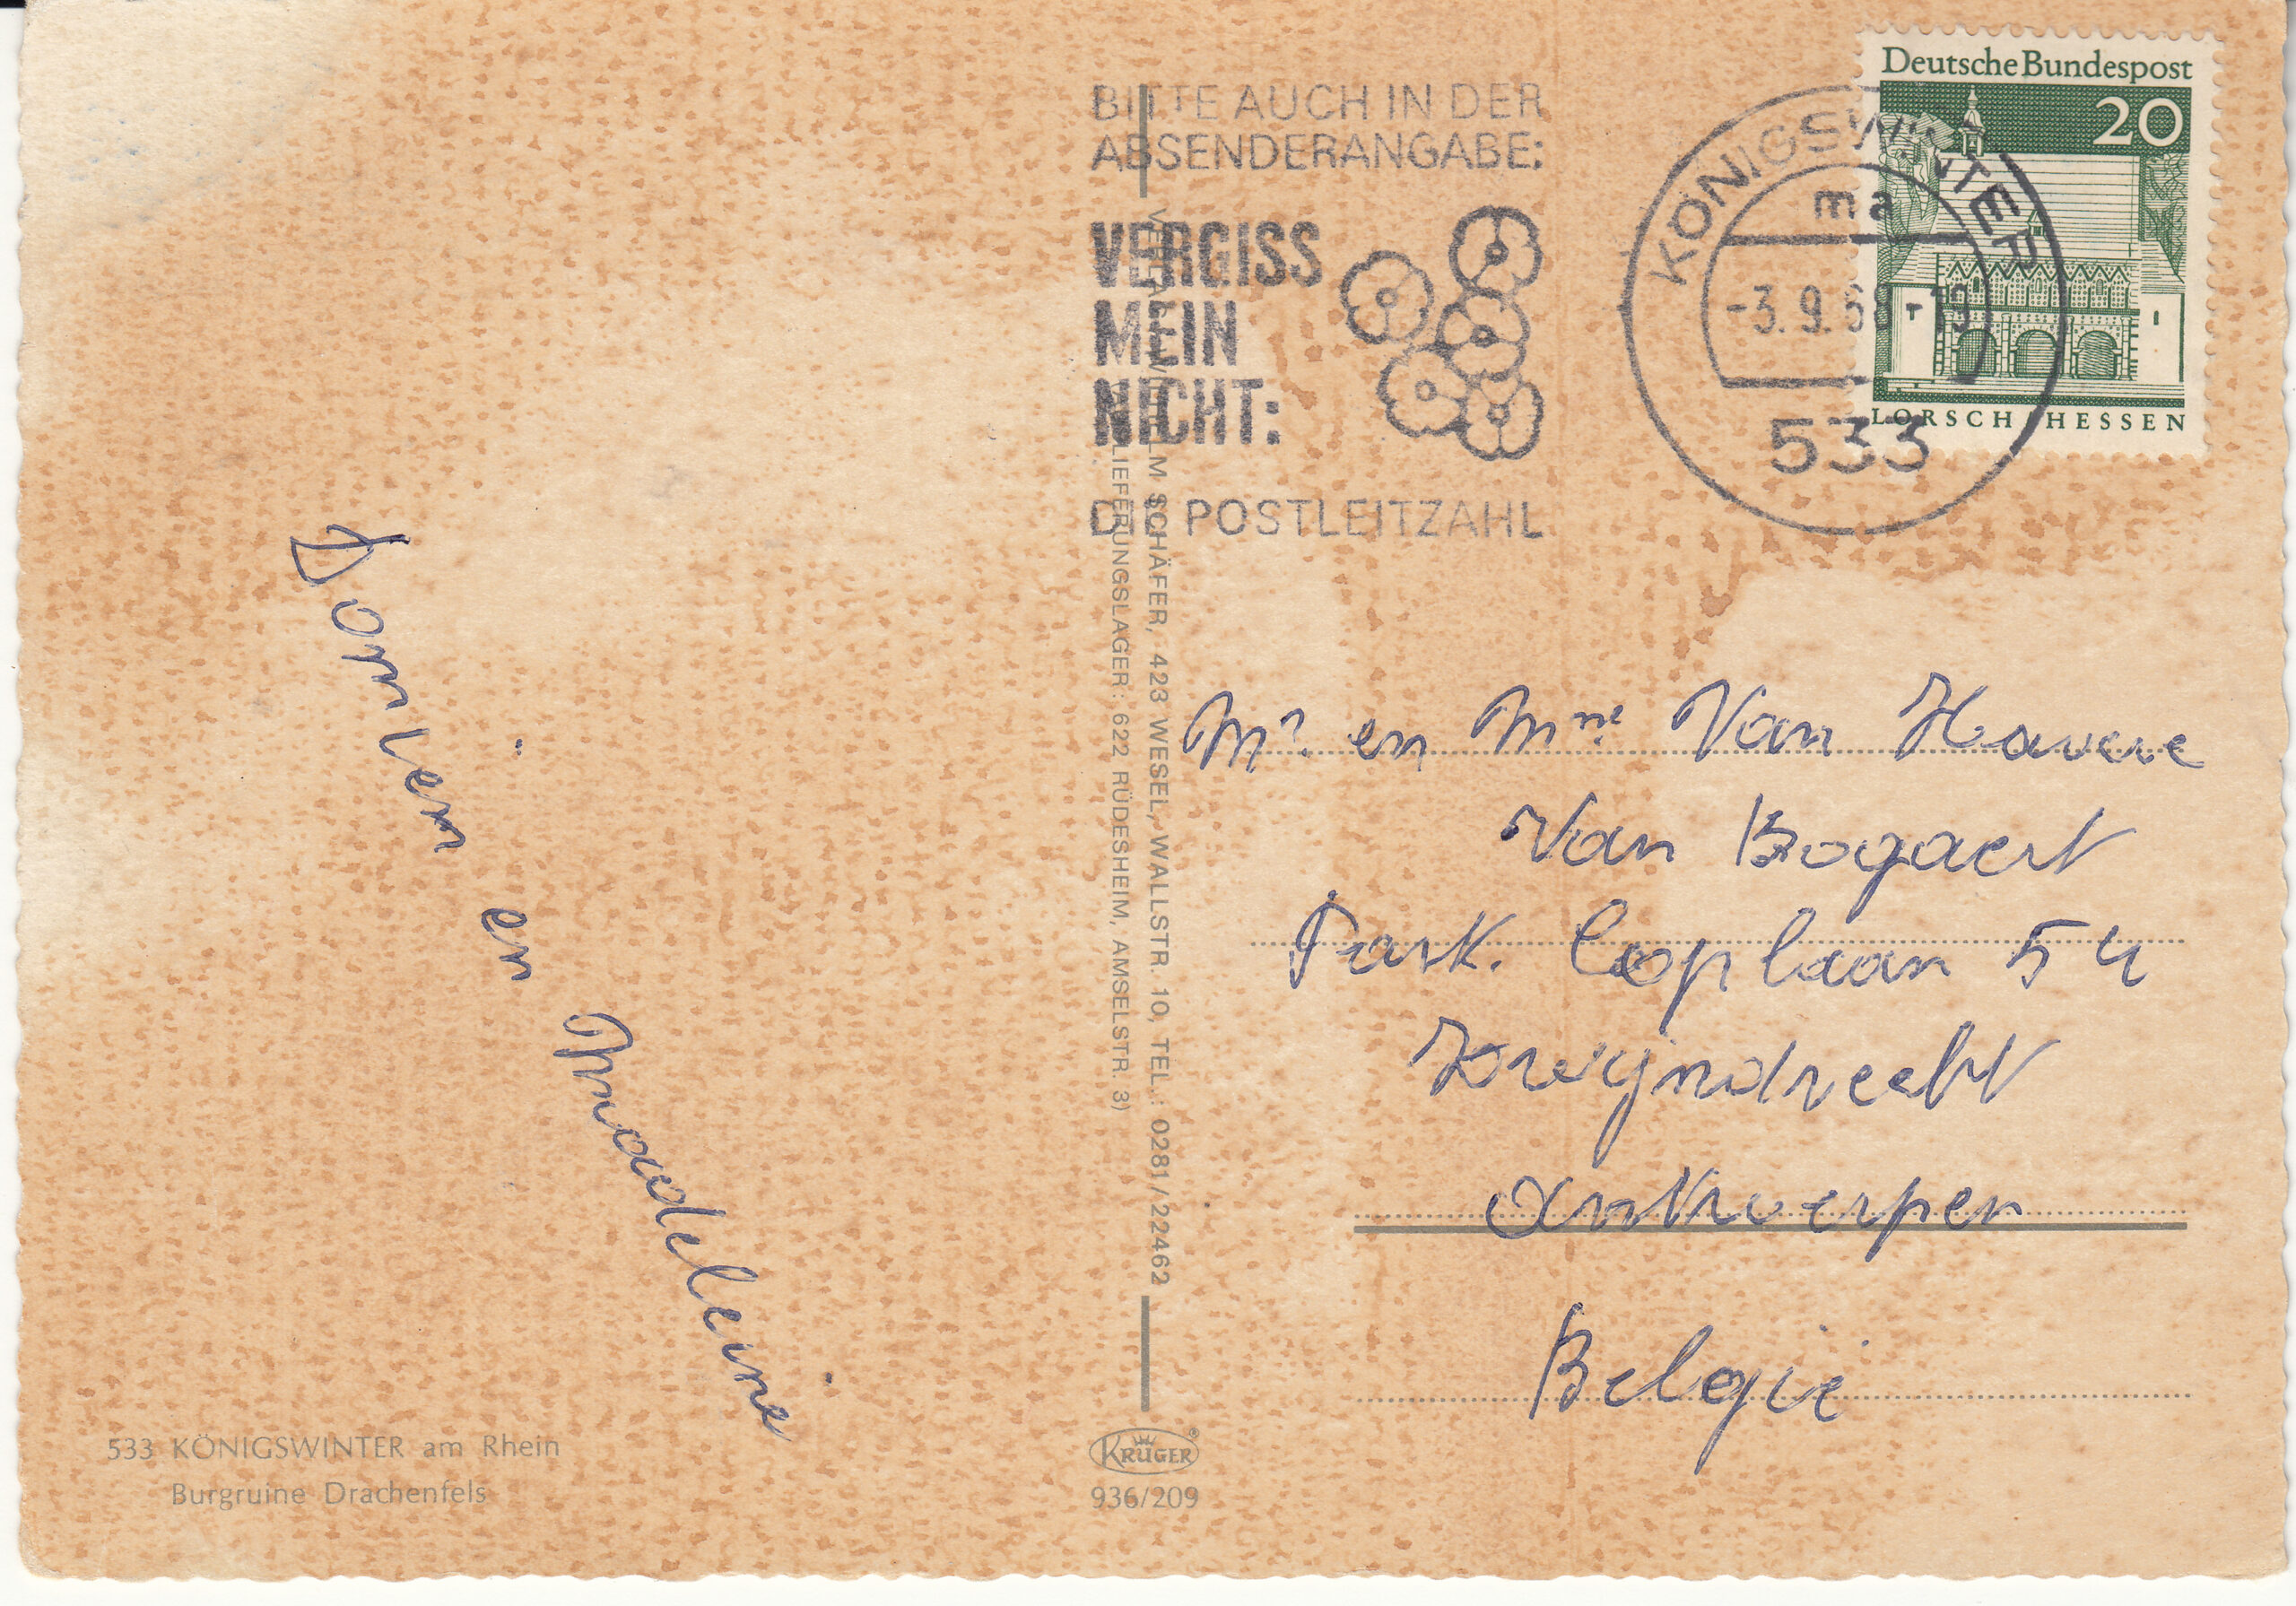 Deutsche Bundespost
20
LORSCH HESSEN
KÖNIGSWINTER
ma
-3.9.68-19
533
BITTE AUCH IN DER
ABSENDERANGABE:
VERGISS
MEIN
NICHT:
DIE POSTLEITZAHL
Domien en Madeleine
VERLAG WILHELM SCHÄFER, 423 WESEL, WALLSTR. 10, TEL.: 0281/22462
LIEFERUNGSLAGER: 622 RÜDESHEIM, AMSELSTR. 3)
Mr. en Mme Van Havere
Van Bogaert
Past. Coplaan 54
Zwijndrecht
Antwerpen
België
533 KÖNIGSWINTER am Rhein
Burgruine Drachenfels
KRÜGER®
936/209